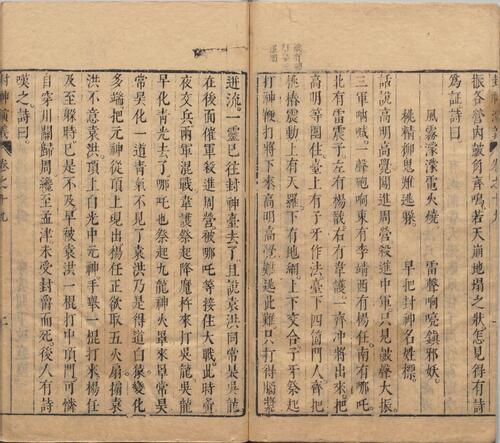 振各營內鼓角齊鳴若天崩地塌之狀怎見得有詩
為証詩曰
風霧濛濛電火燒　雷聲响喨鎮邪妖。
桃精柳鬼難逃躲　早把封神名姓標。
話說高明高覺闖進周營殺進中軍只見鼓聲大振。
三軍吶喊。一聲砲响東有李靖西有楊任南有哪吒。
北有雷震子。左有楊戩右有韋護。一齊冲將出來把
高明等圍住。臺上有子牙作法臺下四箇門人齊。
桃樁震動上有天羅下有地網上下交合子牙祭起
打神鞭打將下來高明高覺難逃此難只打得腦漿
迸流。一靈已往封神臺去了。且說袁洪同常昊吳龍
在後面催軍殺進周營被哪吒等接住大戰此時黃
夜交兵兩軍混戰韋護祭起降魔杵來打吳龍吳龍
早化青光去了哪吒也祭起九龍神火罩來罩常昊
常昊化一道青氣不見了袁洪乃是得道白猿變化
多端把元神從頂上現出楊任正欲取五火扇搧袁
洪不意袁洪頂上白光中元神手舉一棍打來楊任
及至躲時已是不及早被袁洪一棍打中頂門可憐
自穿雲關歸周纔至孟津未受封爵而死後人有詩
嘆之。詩曰
封神演義　卷之十九